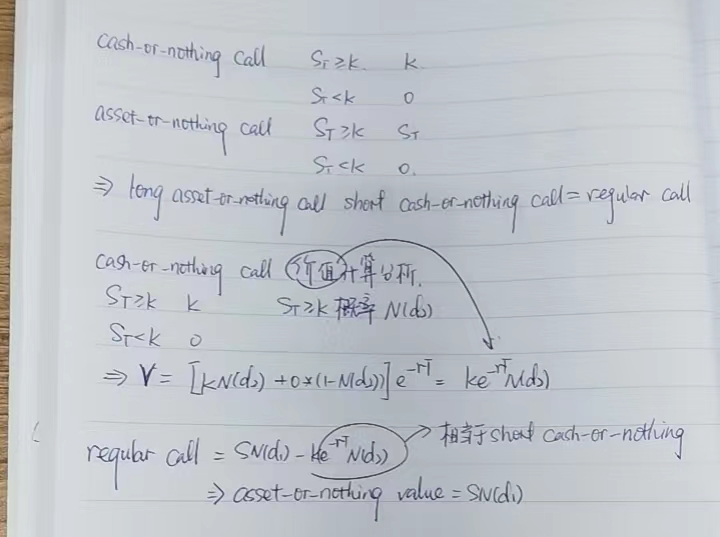 cash-or-nothing call S_T≥K K
S_T<K 0
asset-or-nothing call S_T≥K S_T
S_T<K 0.
⇒ long asset-or-nothing call short cash-or-nothing call = regular call
cash-or-nothing call 价值计算分析.
S_T≥K K S_T≥K 概率 N(d₂)
S_T<K 0
⇒ V = [KN(d₂)+0×(1-N(d₂))]e^{-rT} = Ke^{-rT}N(d₂)
regular call = SN(d₁) - Ke^{-rT}N(d₂) → 相当于short cash-or-nothing
⇒ asset-or-nothing value = SN(d₁)